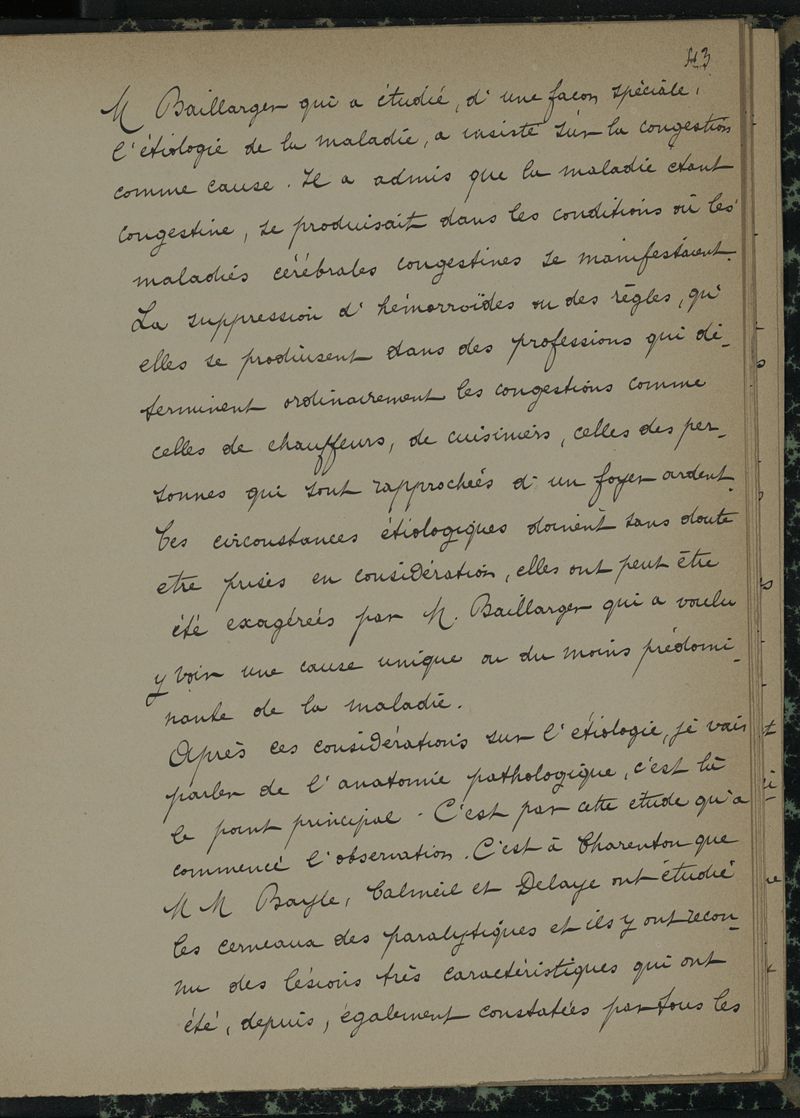 43
M Baillarger qui a étudié, d'une façon spéciale,
l'étiologie de la maladie, a insisté sur la congestion
comme cause. Il a admis que la maladie étant
congestive, se produisait dans les conditions où les
maladies cérébrales congestives se manifestaient.
La suppression d'hémorroïdes ou des règles, qu'
elles se produisent dans des professions qui dé-
terminent ordinairement les congestions comme
celles de chauffeurs, de cuisiniers, celles des per-
sonnes qui sont rapprochées d'un foyer ardent.
Ces circonstances étiologiques doivent sans doute
etre prises en considération, elles ont peut être
été exagérées par M. Baillarger qui a voulu
y voir une cause unique ou du moins prédomi-
nante de la maladie.
Après ces considérations sur l'étiologie, je vais
parler de l'anatomie pathologique, c'est là
le point principal. C'est par cette etude qu'a
commencé l'observation. C'est à Charenton que
M M Bayle, Calmeil et Delaye ont étudié
les cerveaux des paralytiques et ils y ont recon-
nu des lésions très caractéristiques qui ont
été, depuis, également constatées par tous les